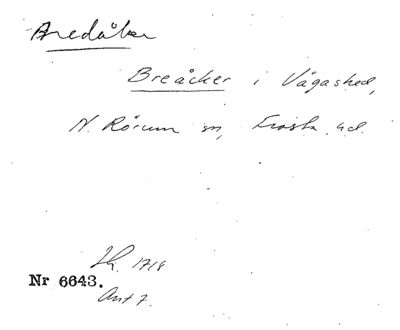 Bredåker
Breåcker i Vågashed,
N. Rörum sn, Frosta hd.
Lh. 1718
Nr 6643.
Ant 7.